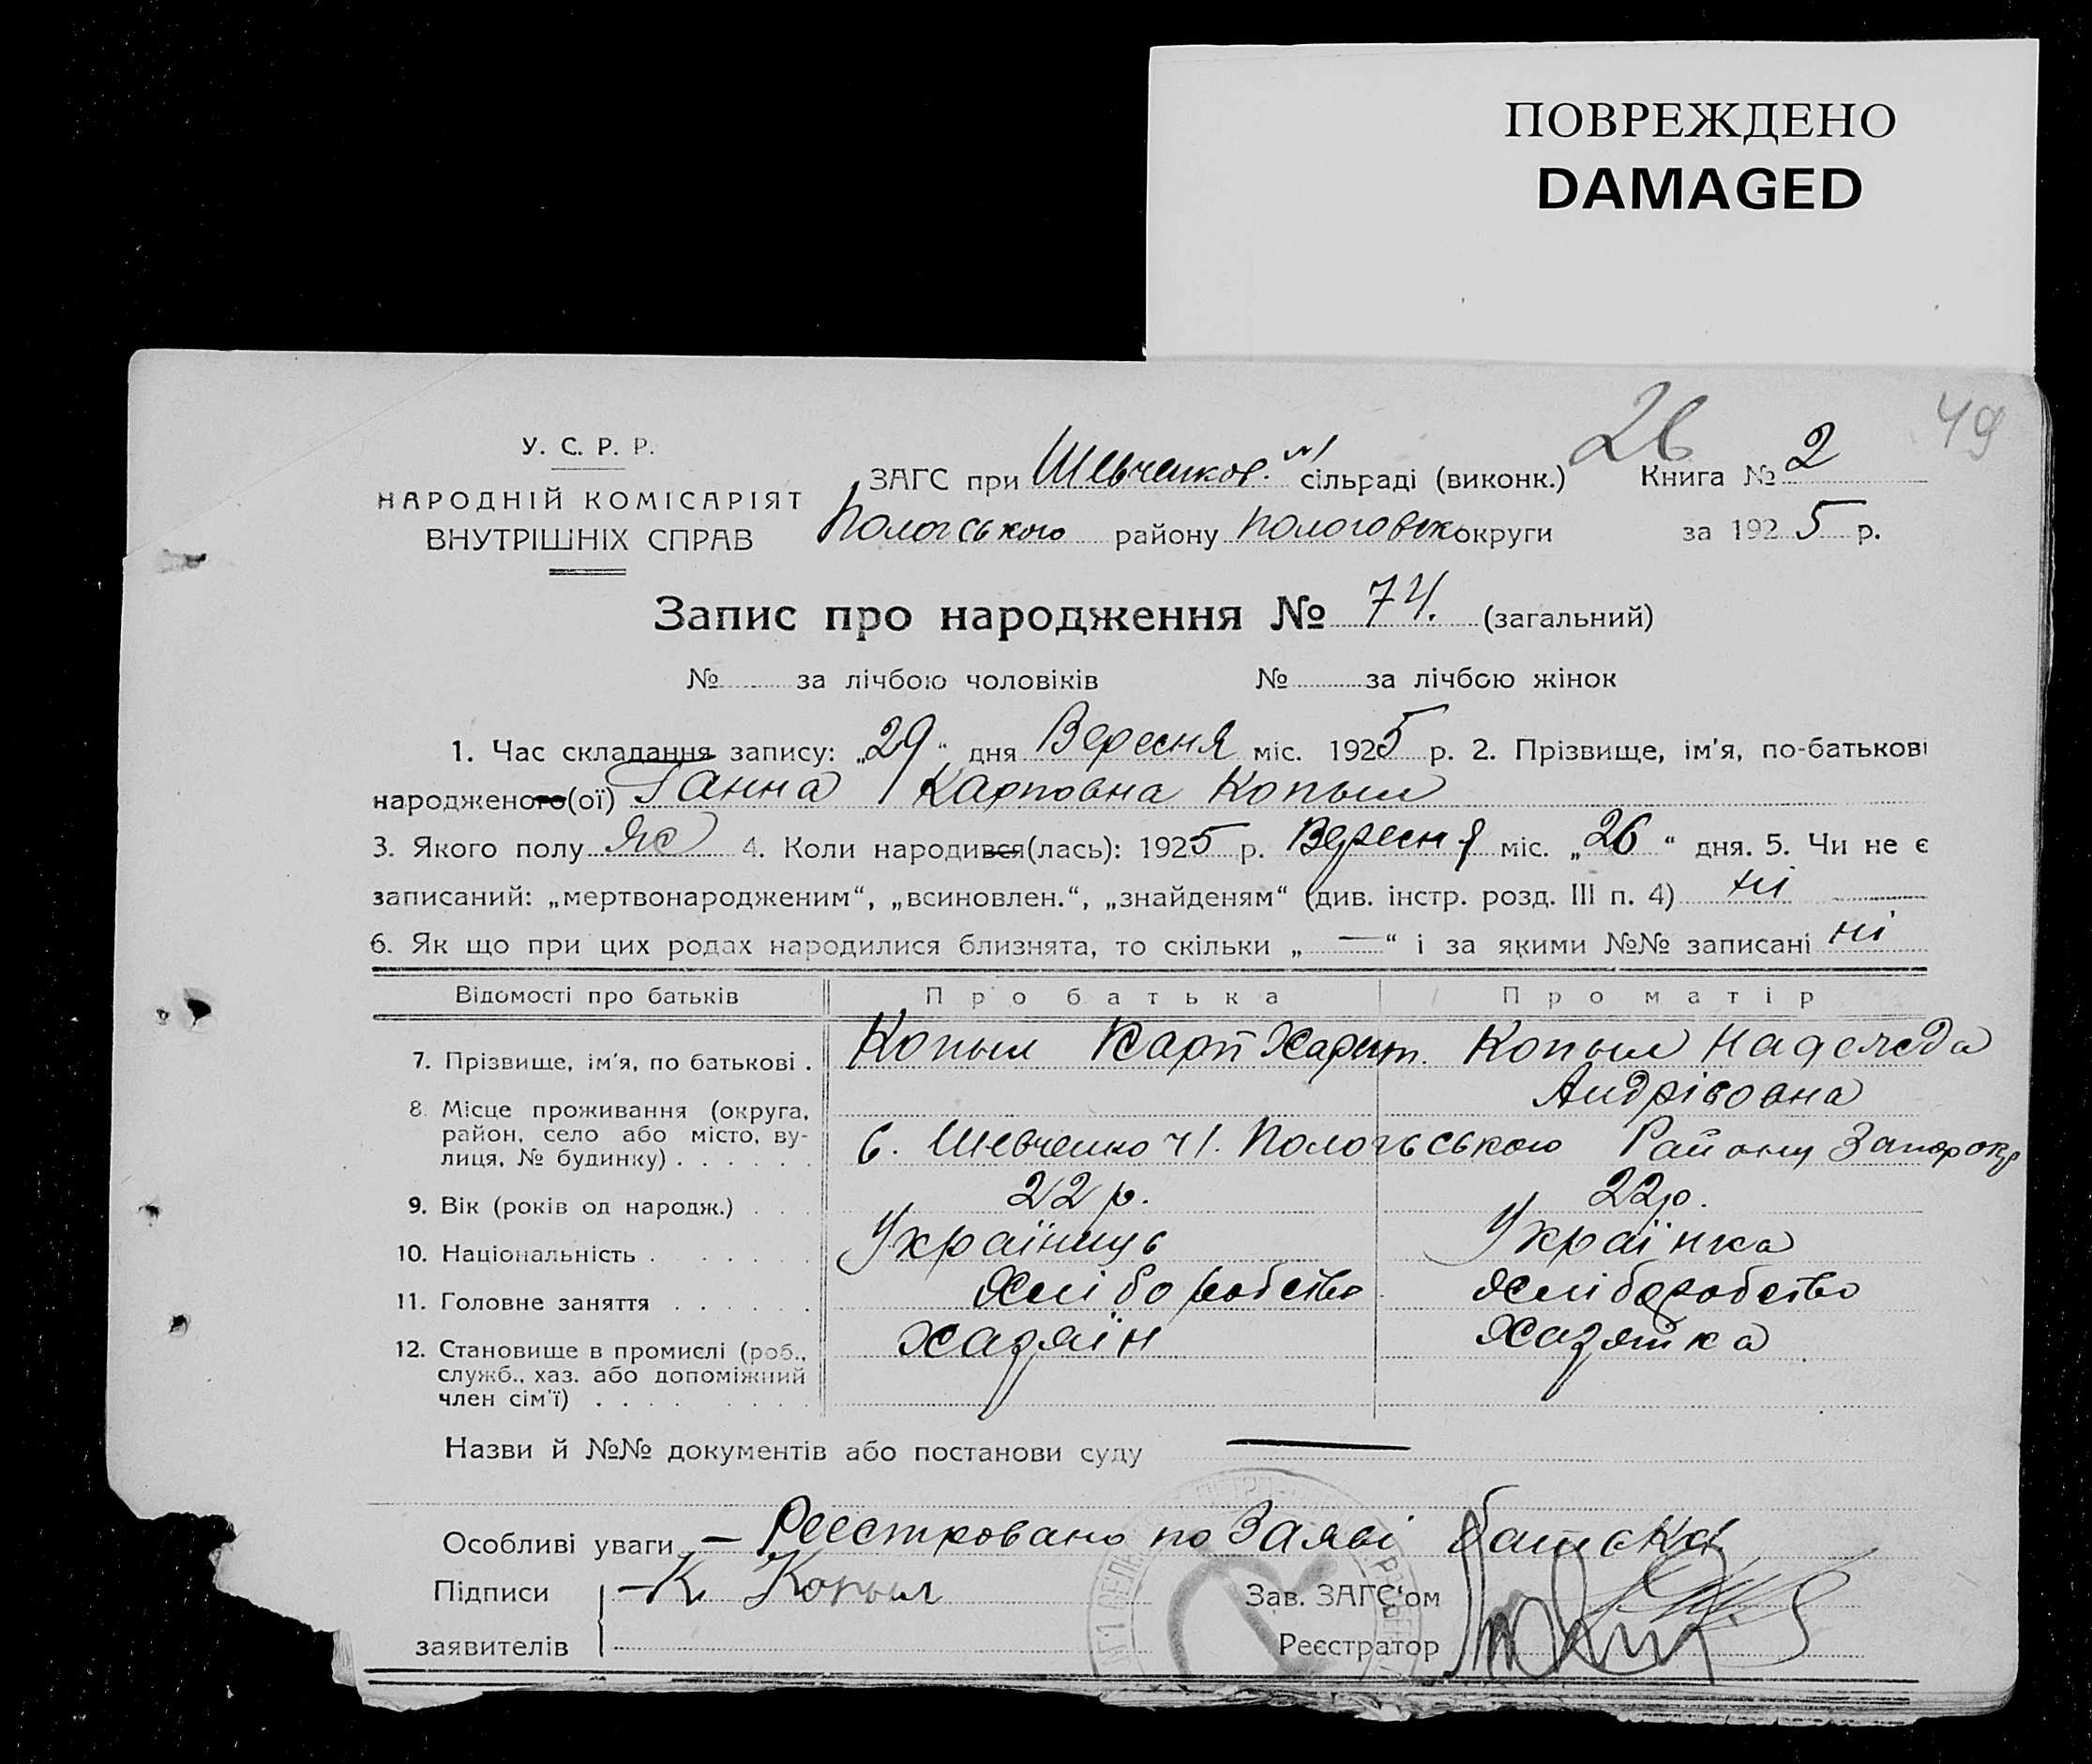 ПОВРЕЖДЕНО
DAMAGED
26 49
У. С. Р. Р.
НАРОДНІЙ КОМІСАРІЯТ
ВНУТРІШНІХ СПРАВ
ЗАГС при Шевченков. №1 сільраді (виконк.) Книга № 2
Пологського району Пологовськ округи за 1925 р.
Запис про народження № 74. (загальний)
№ за лічбою чоловіків № за лічбою жінок
1. Час складання запису: „29“ дня Вересня міс. 1925 р. 2. Прізвище, ім'я, по-батькові
народженого(ої) Ганна Карповна Копыл
3. Якого полу жс 4. Коли народився(лась): 1925 р. Вересня міс. „26“ дня. 5. Чи не є
записаний: „мертвонародженим“, „всиновлен.“, „знайденям“ (див. інстр. розд. III п. 4) ні
6. Як що при цих родах народилися близнята, то скільки „—“ і за якими №№ записані ні
Відомості про батьків Про батька Про матір
7. Прізвище, ім'я, по батькові . Копыл Карп Харит. Копыл Надежда
Андріовна
8. Місце проживання (округа,
район, село або місто, ву-
лиця, № будинку) . . . . . . с. Шевченко ч1. Пологського Району Запорокр
9. Вік (років од народж.) . . . 22 р. 22 р.
10. Національність . . . . . . . Українець Українка
11. Головне заняття . . . . . . Хліборобство Хліборобство
12. Становище в промислі (роб.,
служб., хаз. або допоміжний
член сім'ї) . . . . . . . . Хазяїн Хазяйка
Назви й №№ документів або постанови суду —
Особливі уваги — Реєстровано по Заяві батька
Підписи — К Копыл Зав. ЗАГС'ом
заявителів Реєстратор